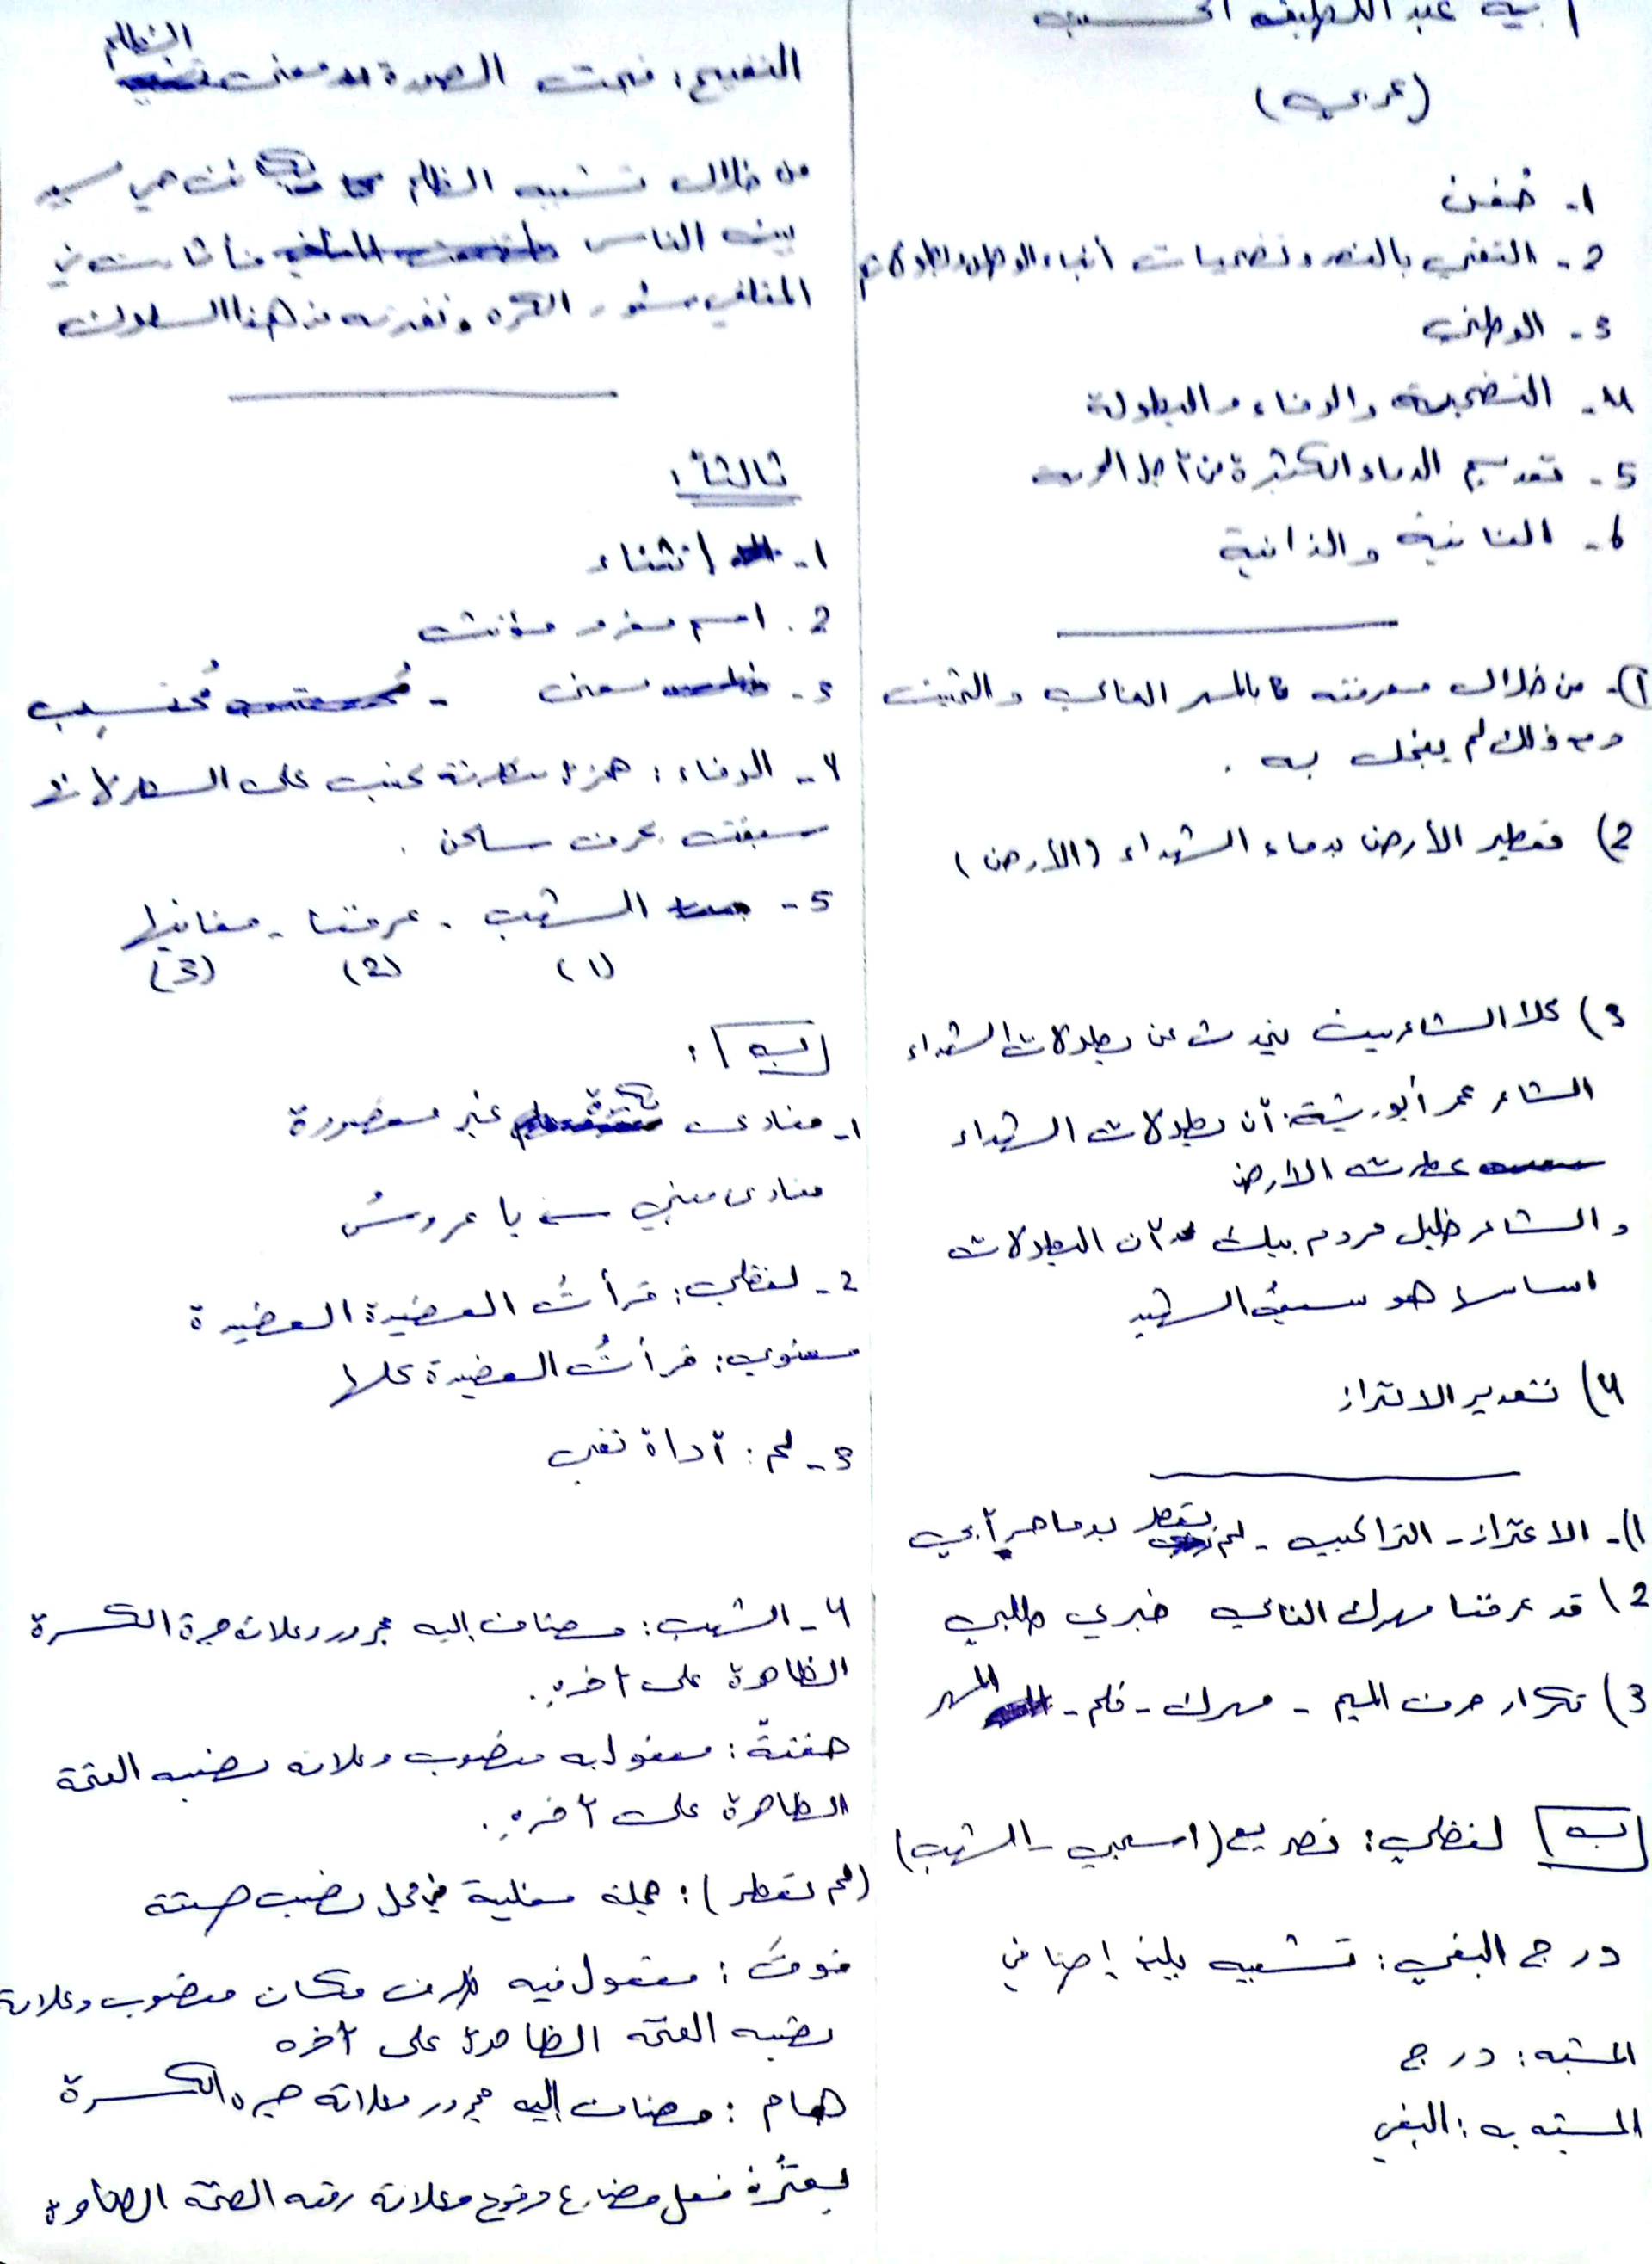 عبد اللطيف
(عربي)
1- خفف
2- التغني بالنصر وتضحيات أبناء الوطن وبطولاتهم
3- الوطني
4- التضحية والوفاء والبطولة
5- تقديم الدماء الكثيرة من أجل الحرية
6- الثانية والذاتية
1)- من خلال معرفته بالمهر الغالي والثمين
ومع ذلك لم يبخل به .
2) فتعطير الأرض بدماء الشهداء (الأرض)
3) كلا الشاعرين يتحدث عن بطولات الشهداء
الشاعر عمر أبو ريشة: أن بطولات الشهداء
عطرت الأرض
والشاعر خليل مردم بيك أن البطولات
اساسها هو سيف الشهيد
4) تقدير الاعتزاز
1)- الاعتزاز - التراكيب - لم تعطر بدما حر أبي
2) قد عرفنا مهرك الغالي خبري طلبي
3) تكرار حرف الميم - مهرك - فلم - المهر
ب لفظي: تصريع (اسحبي - الشهب)
درج البغي: تشبيه بليغ إضافي
المشبه: درج
المشبه به: البغي
الظلام
التقبيح: قبحت الصورة معنى
من خلال تشبيه الظلم حي يسير
بين الناس فأثارت في
المتلقي شعور الكره ونفرته من هذا السلوك
ثالثاً:
1- انثناء
2. اسم مفرد مؤنث
3- معنى - محتسب
4- الوفاء: همزة متطرفة كتبت على السطر لأنها
سبقت بحرف ساكن .
5- الشهب - عرفتنا - مغانيها
(1) (2) (3)
ب:
1- منادى نكرة غير مقصودة
منادى مبني يا عروسُ
2- لفظي: قرأتُ القصيدة القصيدة
معنوي: قرأتُ القصيدة كلها
3- لم: أداة نفي
4- الشهب: مضاف إليه مجرور وعلامة جره الكسرة
الظاهرة على آخره.
حفنةً: مفعول به منصوب وعلامة نصبه الفتحة
الظاهرة على آخره.
(لم تعطر): جملة فعلية في محل نصب صفة
فوقَ: مفعول فيه ظرف مكان منصوب وعلامة
نصبه الفتحة الظاهرة على آخره
هام: مضاف إليه مجرور وعلامة جره الكسرة
فعل مضارع مرفوع وعلامة رفعه الضمة الظاهرة